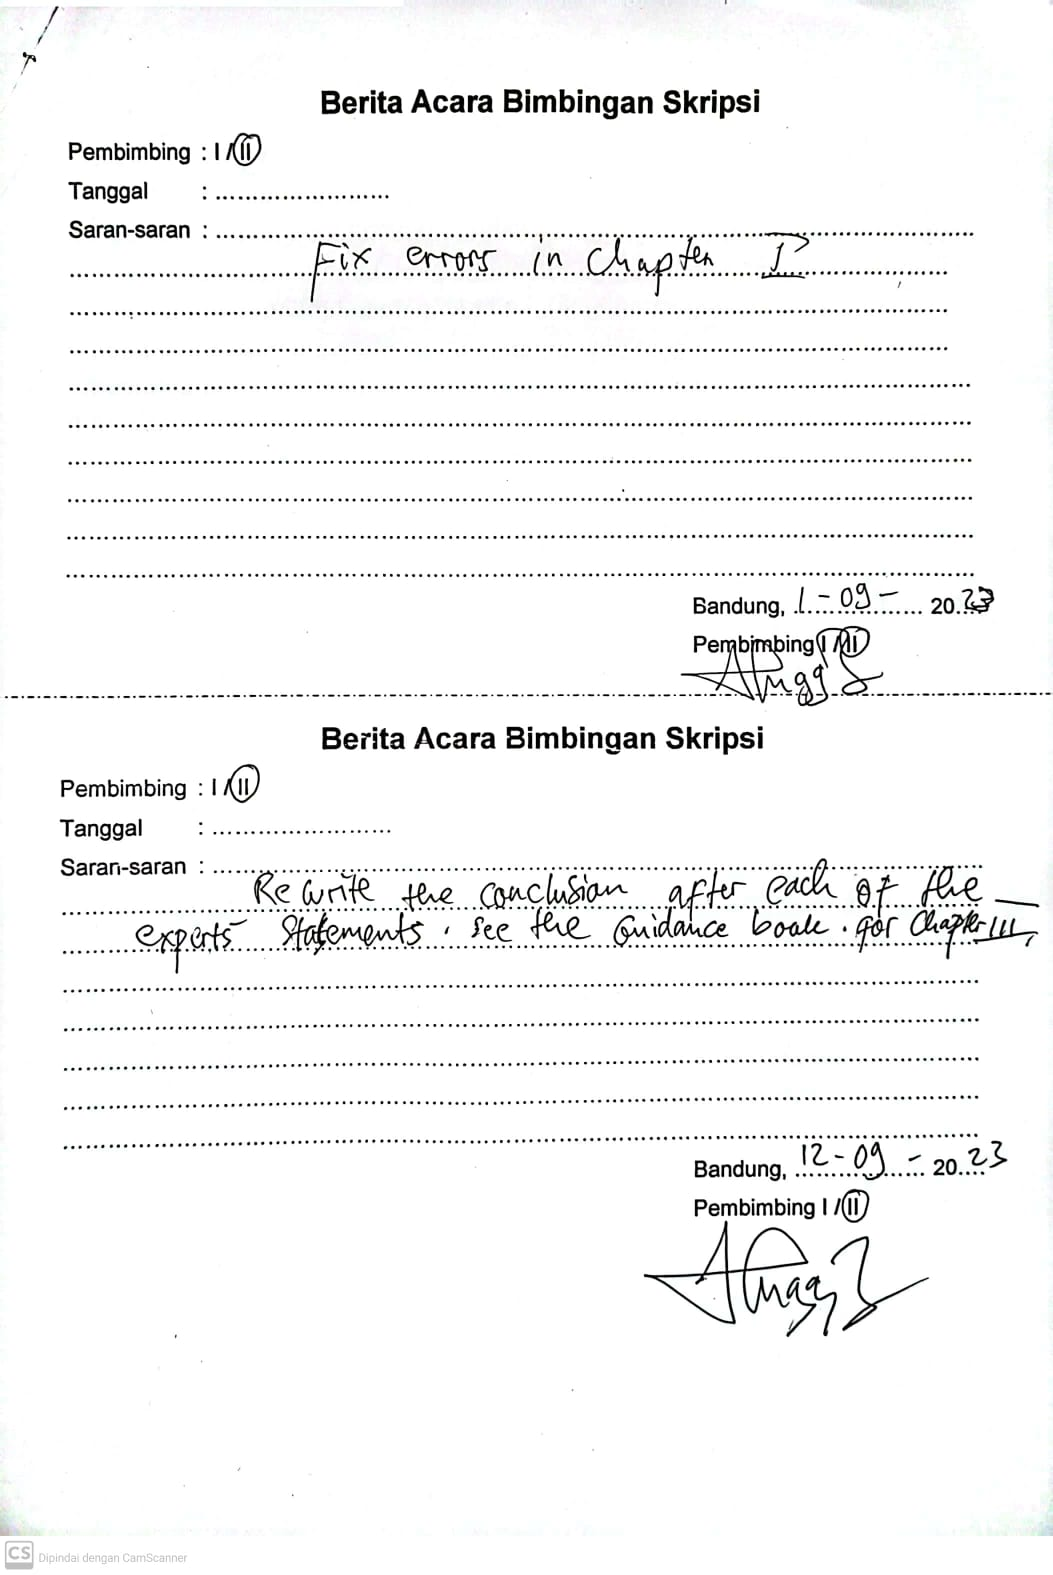 Berita Acara Bimbingan Skripsi
Pembimbing : I / II
Tanggal : ........................
Saran-saran : ........................
Fix errors in Chapter I
Bandung, 1 - 09 - 2023
Pembimbing I / II
Berita Acara Bimbingan Skripsi
Pembimbing : I / II
Tanggal : ........................
Saran-saran : ........................
Rewrite the conclusion after each of the
experts statements. See the Guidance book. for Chapter III,
Bandung, 12 - 09 - 2023
Pembimbing I / II
CS Dipindai dengan CamScanner